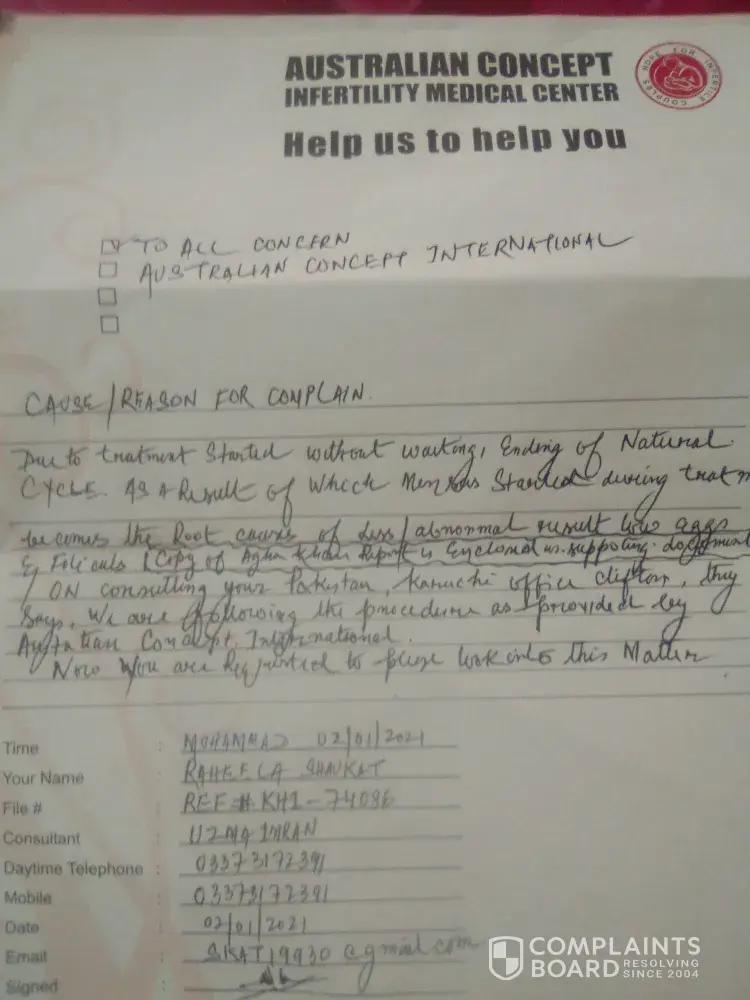 AUSTRALIAN CONCEPT
INFERTILITY MEDICAL CENTER
HOPE FOR INFERTILE COUPLES
Help us to help you
TO ALL CONCERN
AUSTRALIAN CONCEPT INTERNATIONAL
CAUSE/REASON FOR COMPLAIN.
Due to treatment Started without waiting, Ending of Natural
CYCLE. As a Result of Which Menses Started during treatm
becomes the Root cause of Less/abnormal result low aggs
& Folicals (Copy of Agha Khan Report is Enclosed as supporting document
ON consulting your Pakistan, Karachi office Clifton, they
Says, We are following the procedure as provided by
Australian Concept International.
Now You are Requested to please look into this Matter
Time : MUHAMMAD 02/01/2021
Your Name : RAHEELA SHAUKAT
File # : REF # KH1-74086
Consultant : UZMA IMRAN
Daytime Telephone : 03373172391
Mobile : 03373172391
Date : 02/01/2021
Email : SKAT19930@gmail.com
Signed :
COMPLAINTS
BOARD RESOLVING
SINCE 2004